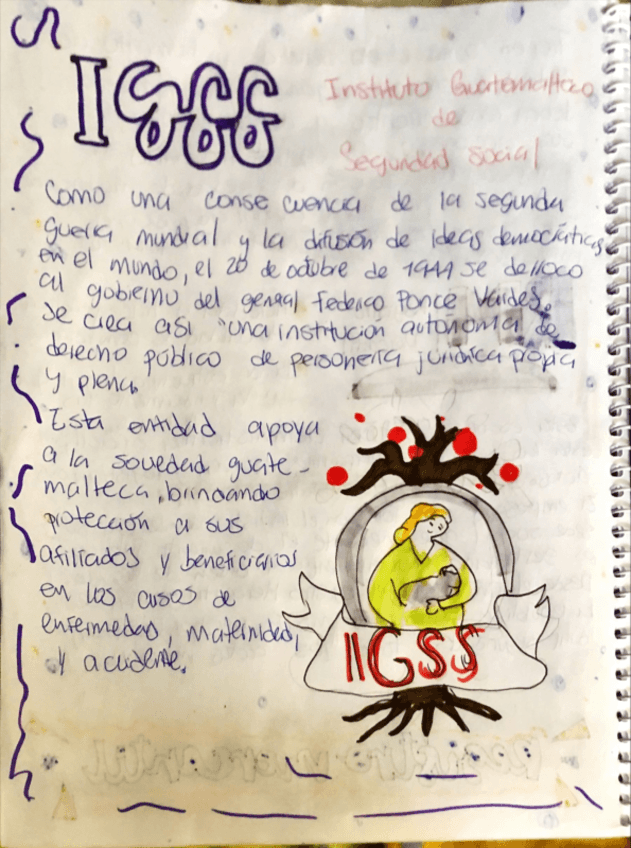 IGSS
Instituto Guatemalteco
de
Seguridad social
Como una consecuencia de la segunda
guerra mundial y la difusión de ideas democráticas
en el mundo, el 20 de octubre de 1944 se derroco
al gobierno del general Federico Ponce Valdes,
se crea asi "una institución autónoma de
derecho público de personeria jurídica propia
y plena.
Esta entidad apoya
a la sociedad guate-
malteca, brindando
protección a sus
afiliados y beneficiarios
en los casos de
enfermedad, maternidad,
y accidente.
IIGSS